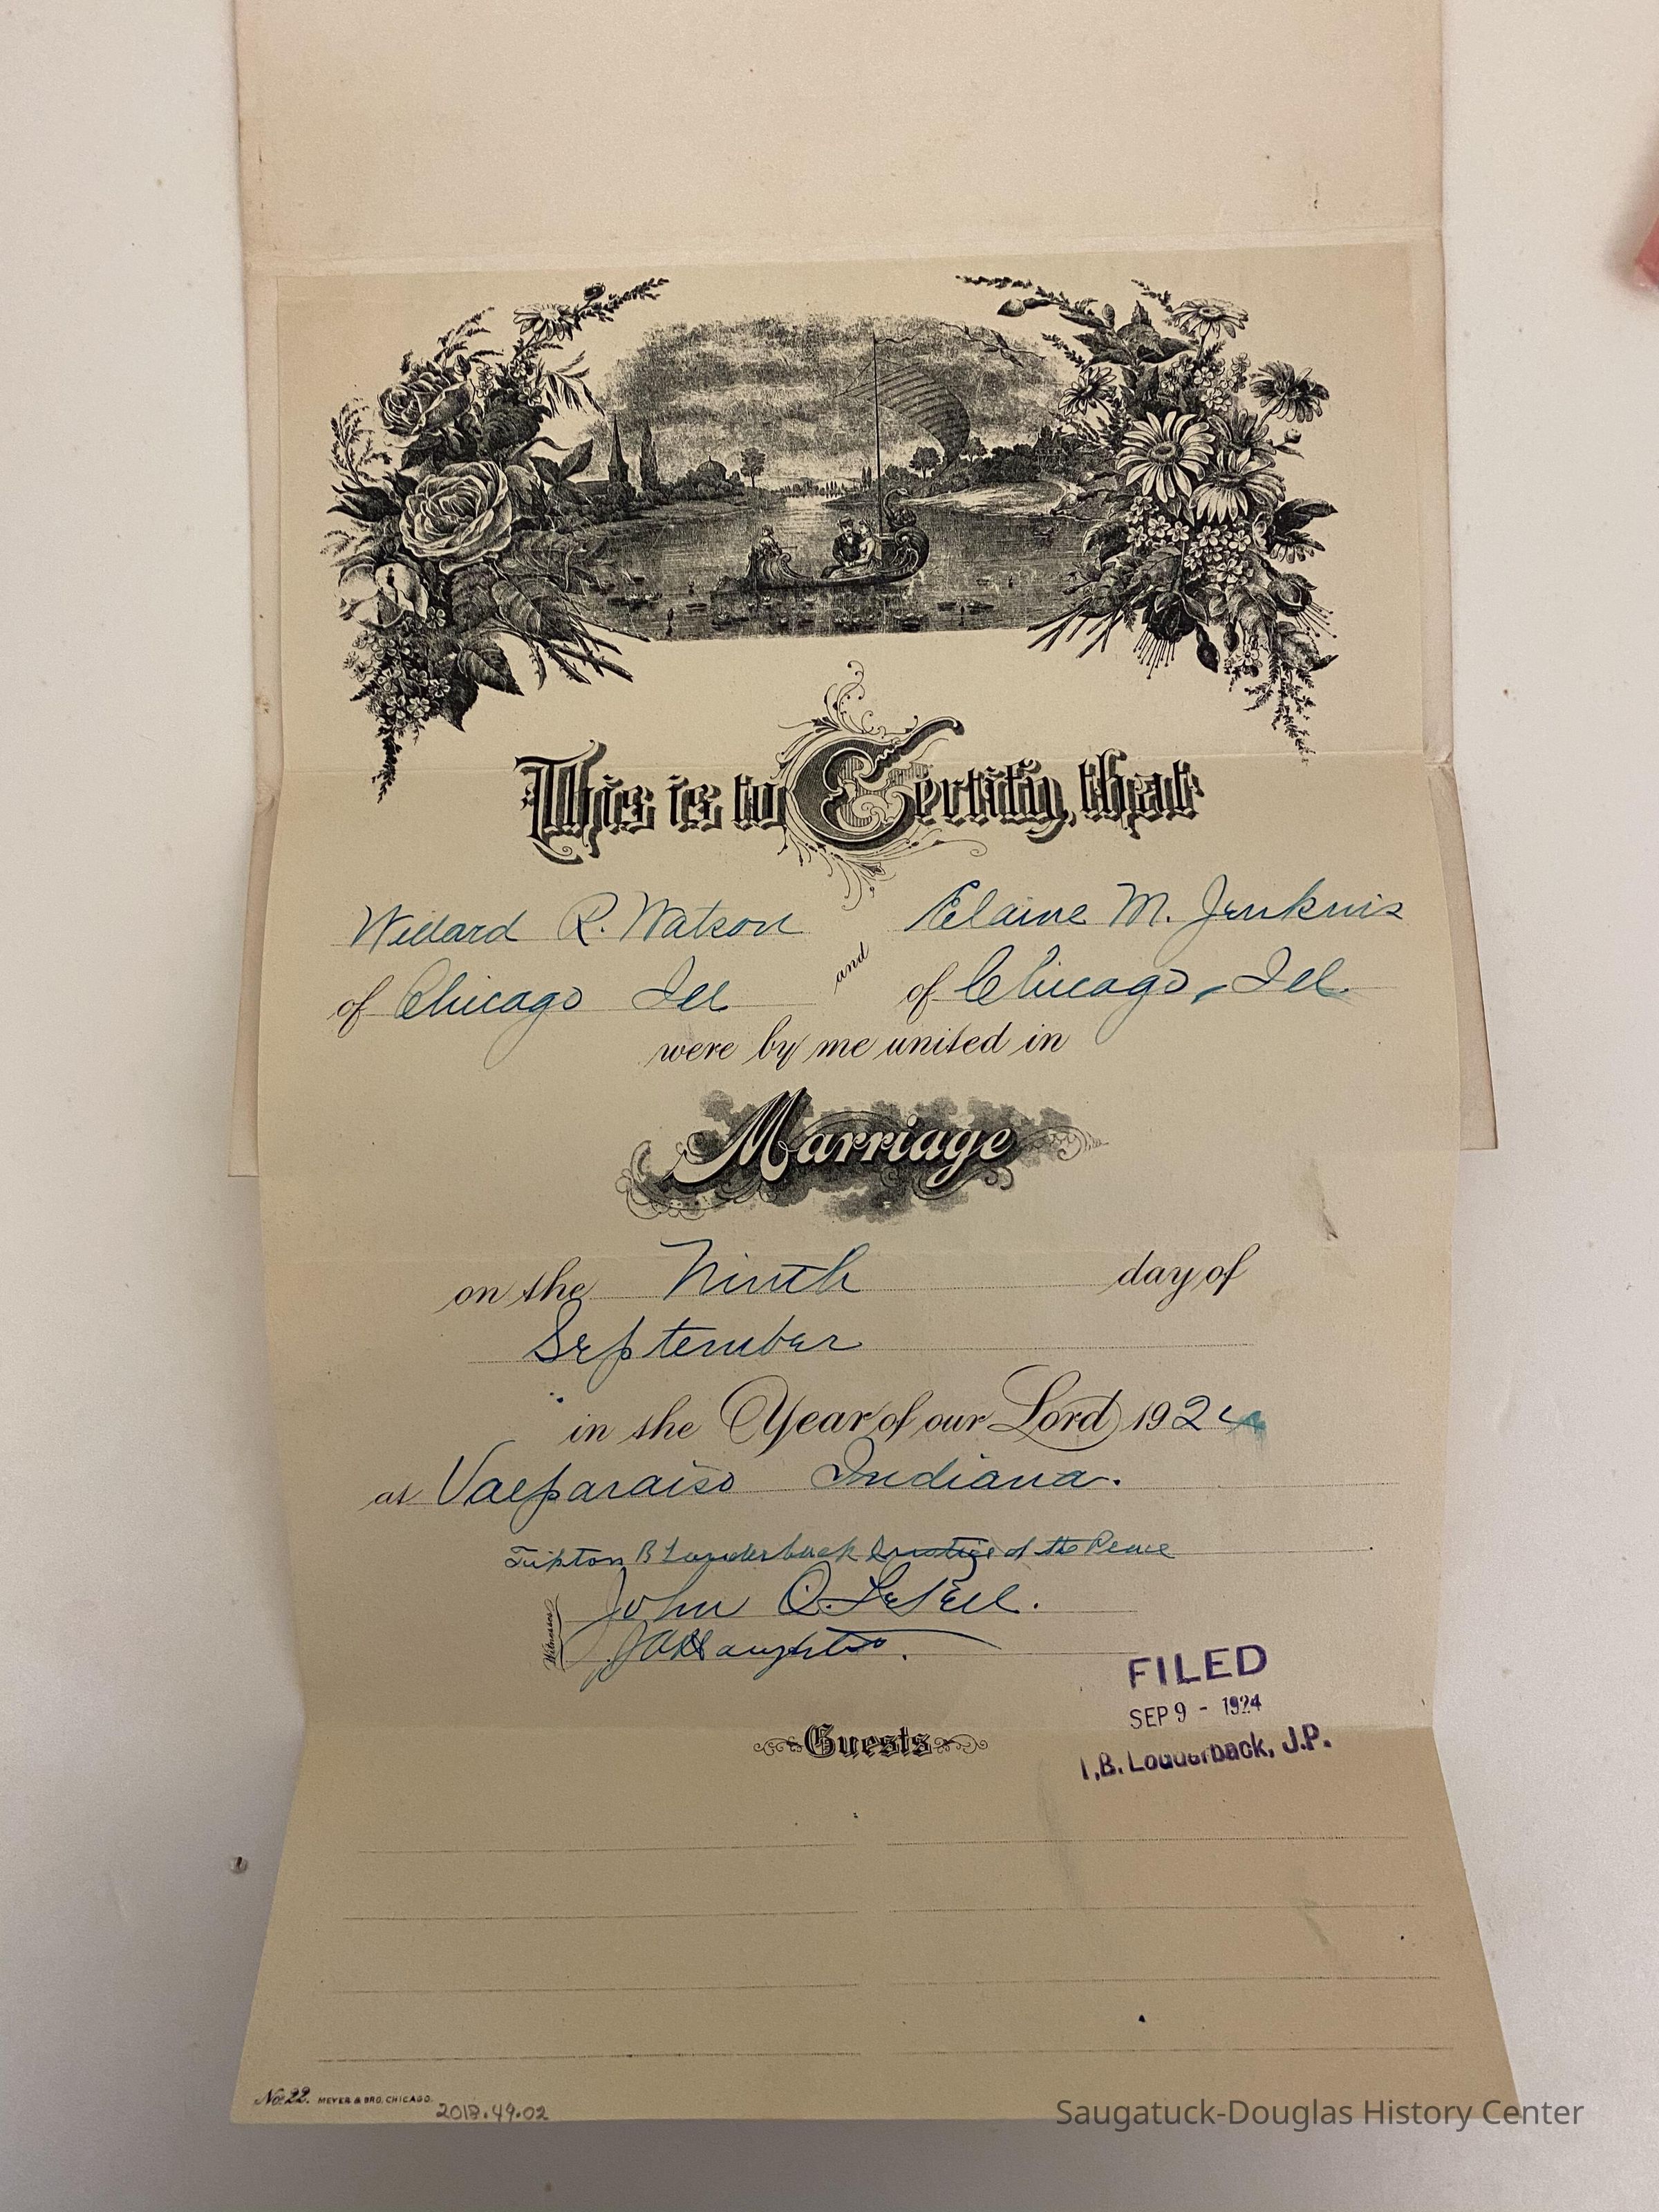 This is to Certify, that
Willard R. Watson and Elaine M. Jenkins
of Chicago Ill of Chicago, Ill.
were by me united in
Marriage
on the Ninth day of
September
in the Year of our Lord 1924
at Valparaiso Indiana.
Tipton B Louderback Justice of the Peace
Witnesses
John
FILED
SEP 9 - 1924
T.B. Louderback, J.P.
Guests
No. 22. MEYER & BRO. CHICAGO.
2018.49.02
Saugatuck-Douglas History Center